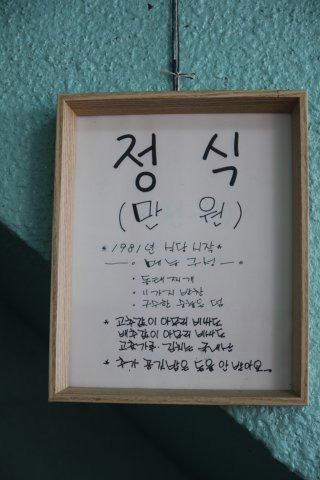 정 식
(만 원)
* 1981년 식당 시작 *
메뉴 구성
· 동태찌개
· 11가지 반찬
· 구수한 숭늉은 덤
* 고추값이 아무리 비싸도
배추값이 아무리 비싸도
고춧가루 김치는 국내산
* 추가 공기밥은 돈을 안 받아요